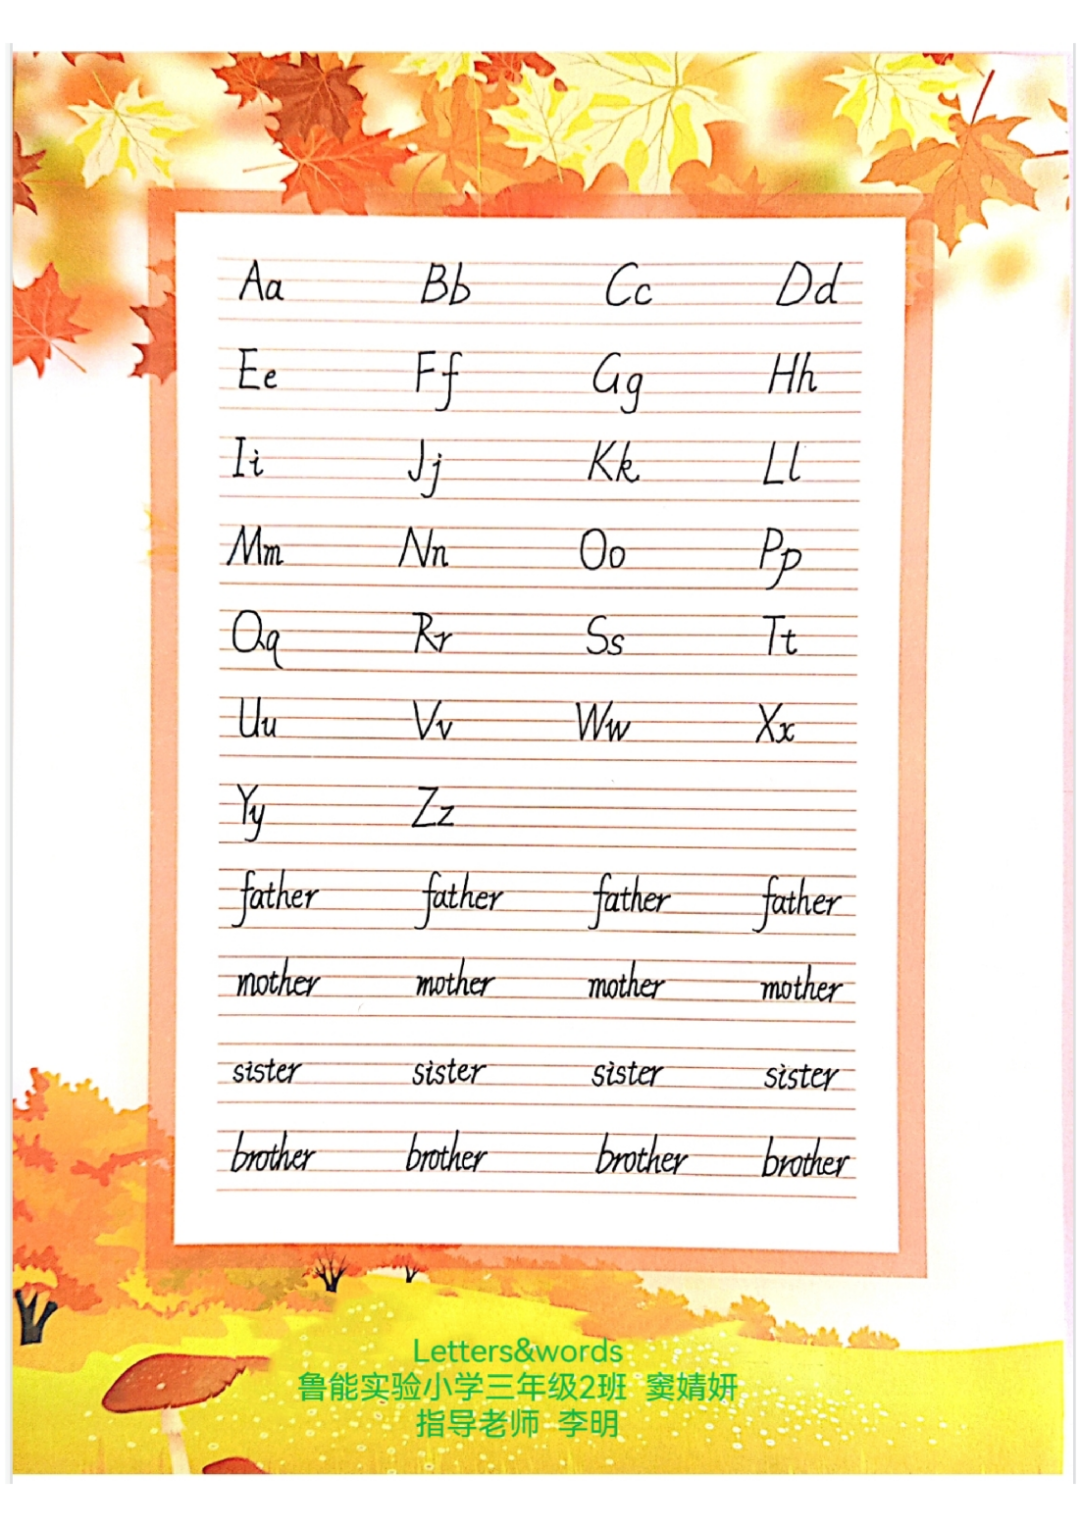 Aa Bb Cc Dd
Ee Ff Gg Hh
Ii Jj Kk Ll
Mm Nn Oo Pp
Qq Rr Ss Tt
Uu Vv Ww Xx
Yy Zz
father father father father
mother mother mother mother
sister sister sister sister
brother brother brother brother
Letters&words
鲁能实验小学三年级2班 窦婧妍
指导老师 李明